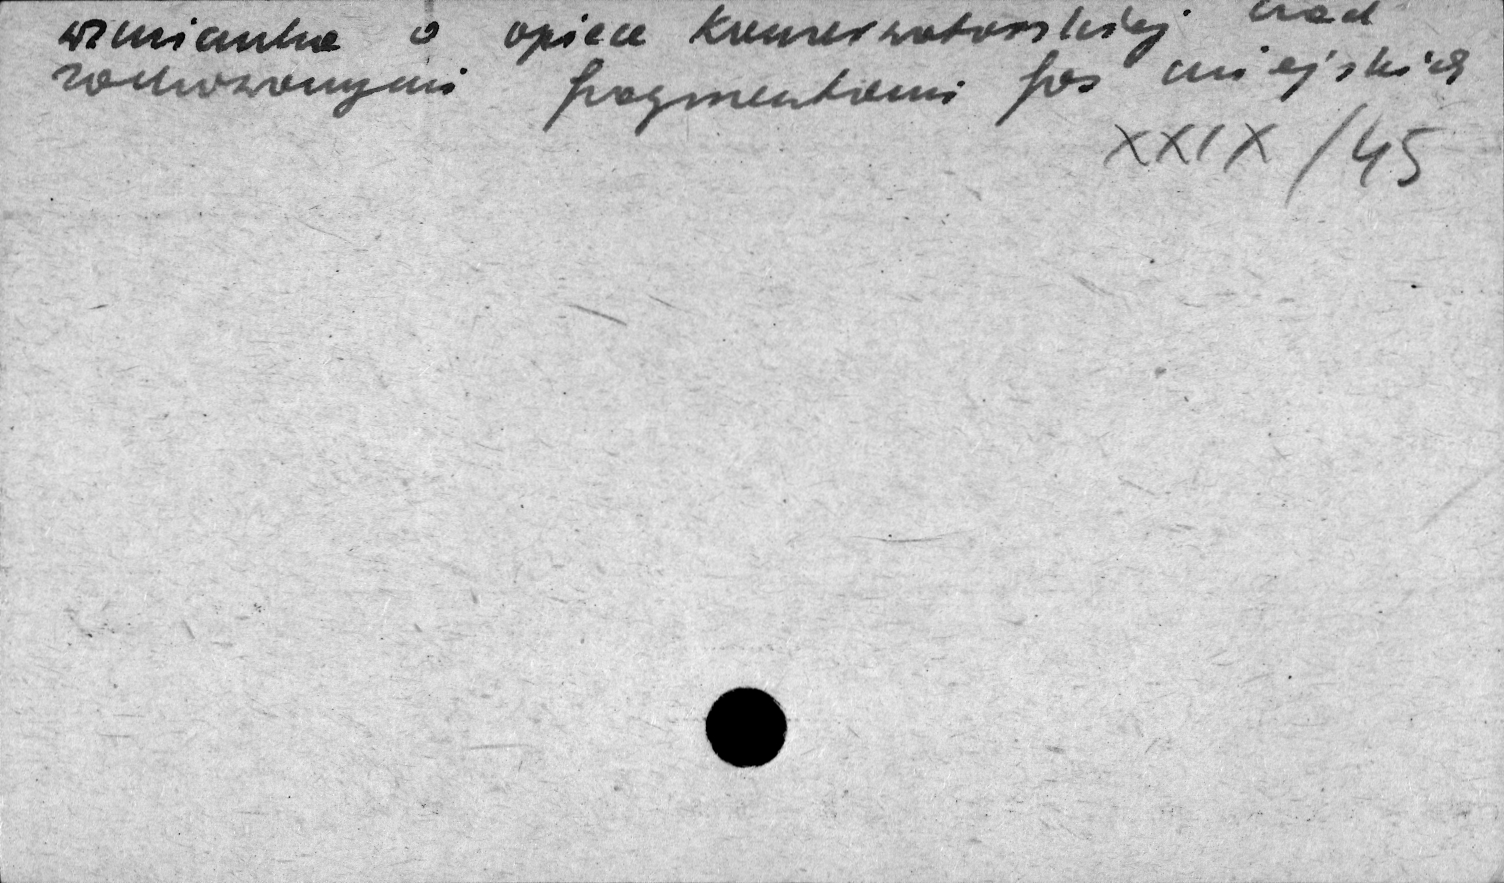 wzmianka o opiece konserwatorskiej nad
zachowanymi fragmentami fos miejskich
XXIX/45